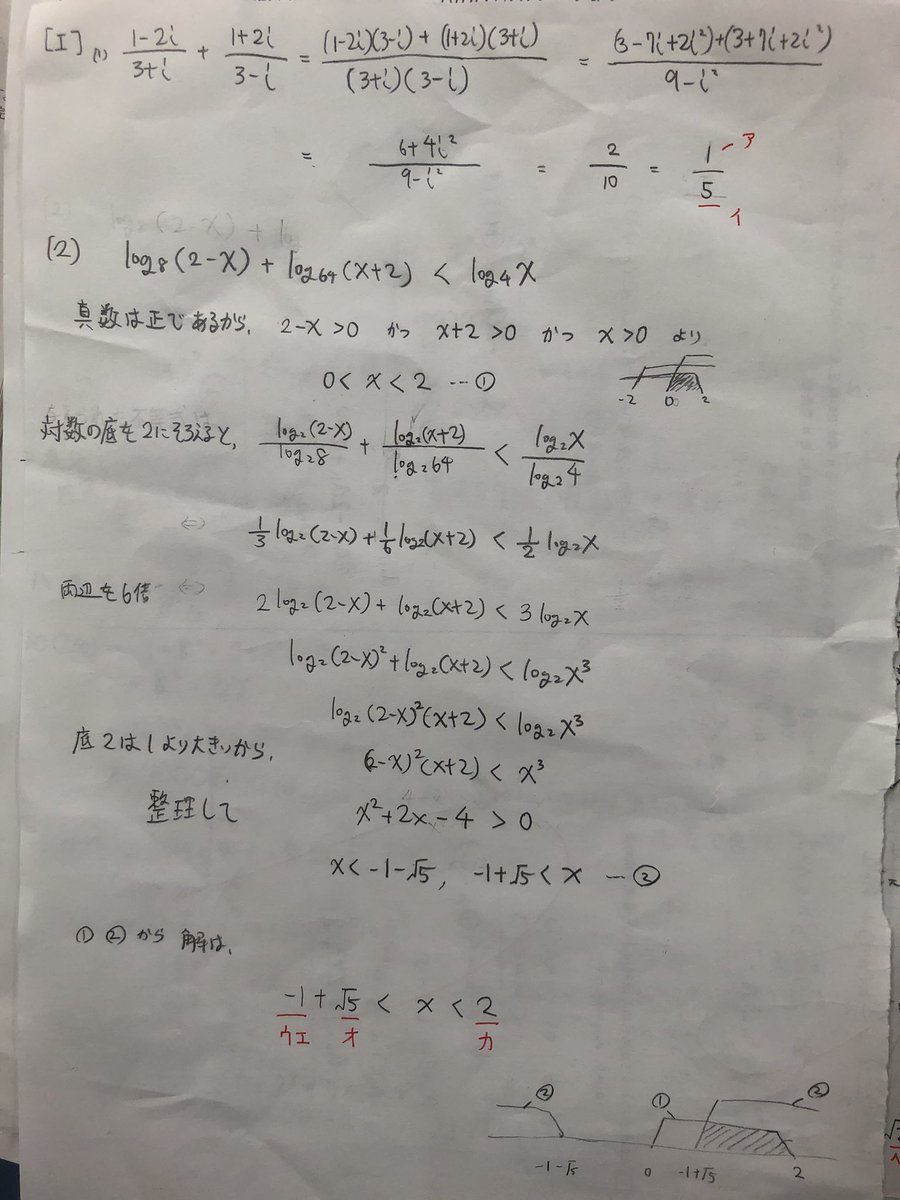 [I] (1) (1-2i)/(3+i) + (1+2i)/(3-i) = ((1-2i)(3-i) + (1+2i)(3+i))/((3+i)(3-i)) = ((3-7i+2i²)+(3+7i+2i²))/(9-i²)
= (6+4i²)/(9-i²) = 2/10 = 1/5 ア イ
(2) log₈(2-x) + log₆₄(x+2) < log₄x
真数は正であるから、 2-x>0 かつ x+2>0 かつ x>0 より
0 < x < 2 … ①
-2 0 2
対数の底を2にそろえると, log₂(2-x)/log₂8 + log₂(x+2)/log₂64 < log₂x/log₂4
⇔ 1/3 log₂(2-x) + 1/6 log₂(x+2) < 1/2 log₂x
両辺を6倍 ⇔ 2log₂(2-x) + log₂(x+2) < 3log₂x
log₂(2-x)² + log₂(x+2) < log₂x³
log₂(2-x)²(x+2) < log₂x³
底2は1より大きいから、
(2-x)²(x+2) < x³
整理して x²+2x-4 > 0
x < -1-√5, -1+√5 < x … ②
① ②から 解は、
-1+√5 < x < 2
ウエ オ カ
② ① ②
-1-√5 0 -1+√5 2